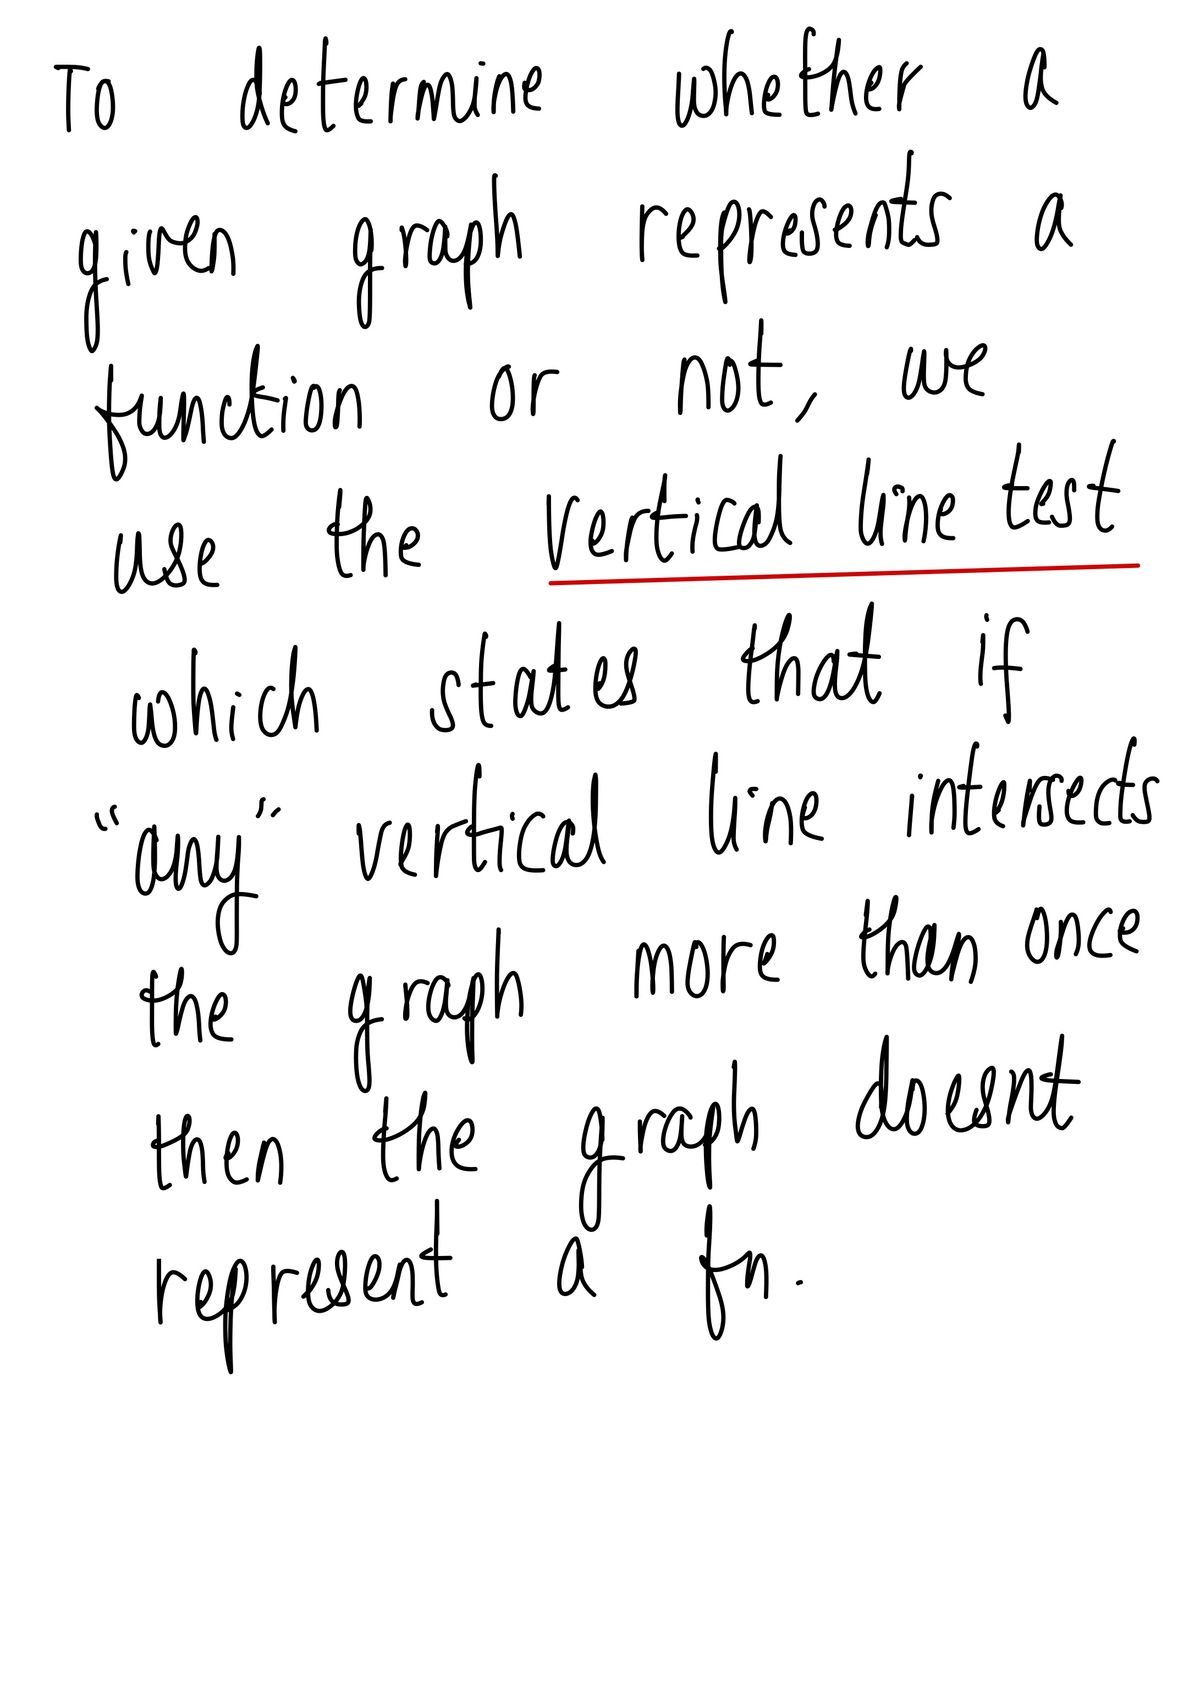 To determine whether a
given graph represents a
function or not, we
use the vertical line test
which states that if
"any" vertical line intersects
the graph more than once
then the graph doesnt
represent a fn.